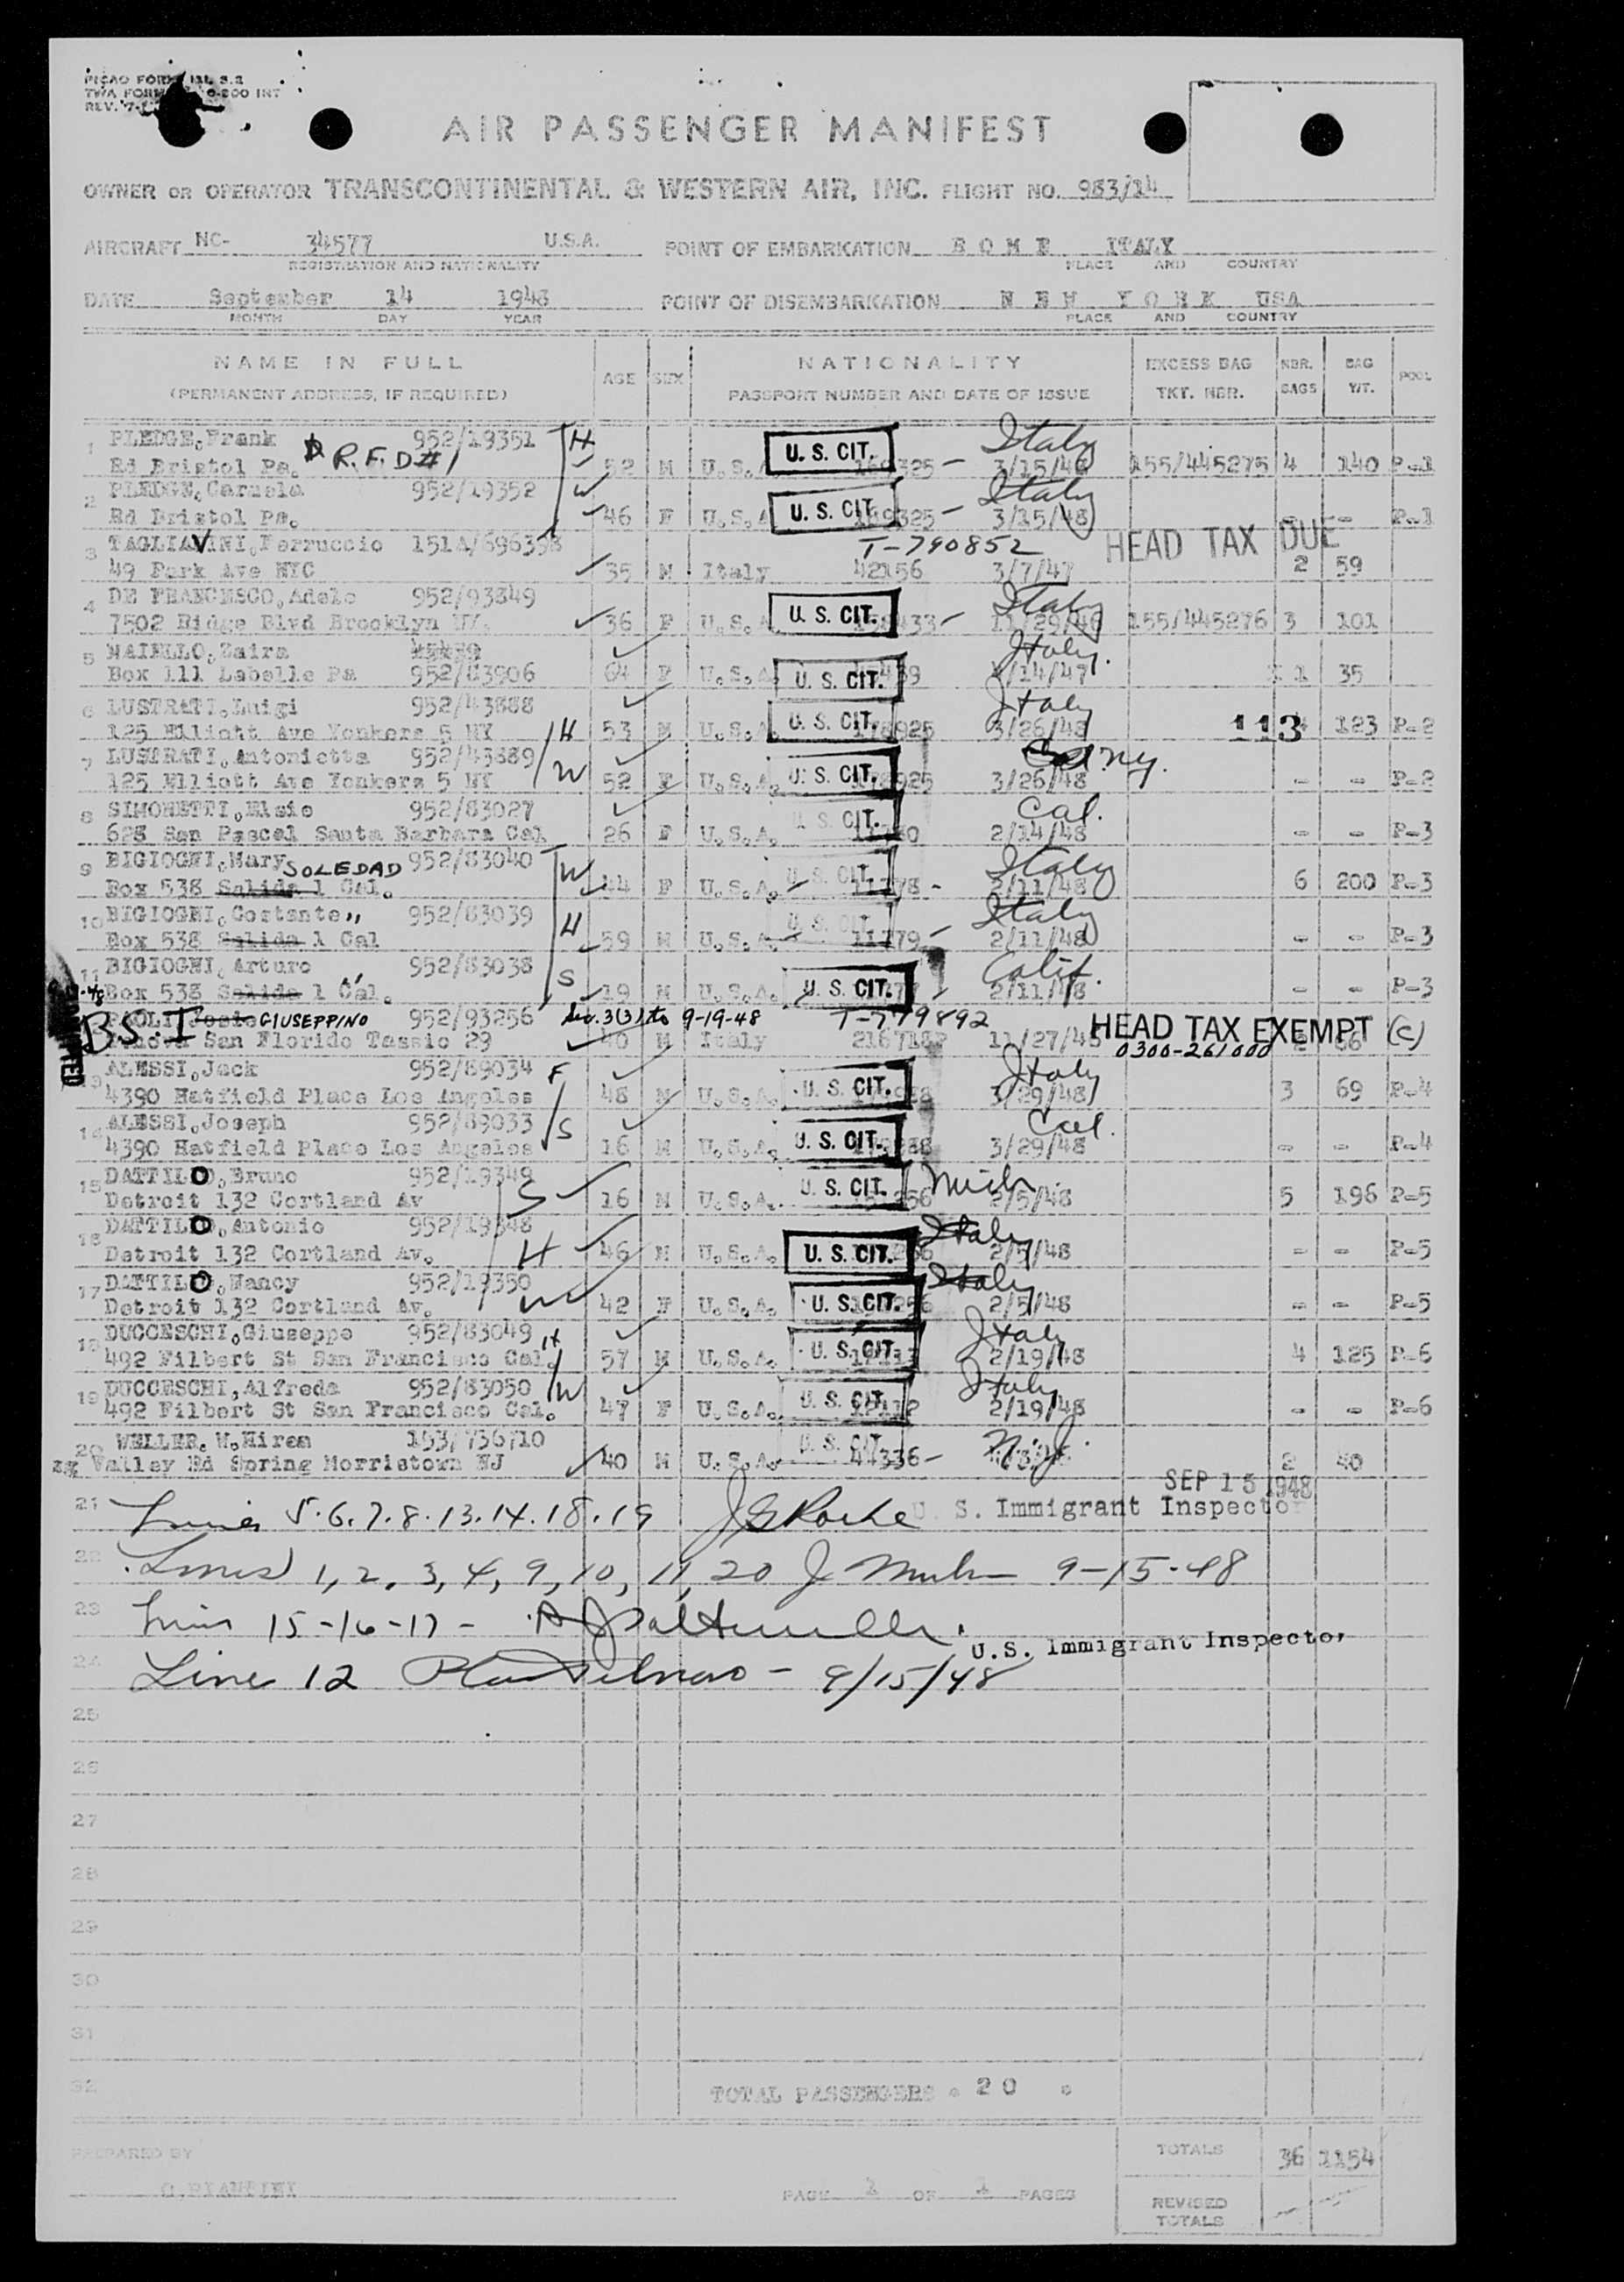 AIR PASSENGER MANIFEST
OWNER OR OPERATOR TRANSCONTINENTAL & WESTERN AIR, INC. FLIGHT NO. 983/14
AIRCRAFT NC- 34577 U.S.A. POINT OF EMBARKATION R O M E ITALY
REGISTRATION AND NATIONALITY PLACE AND COUNTRY
DATE September 14 1948 POINT OF DISEMBARKATION N E W Y O R K USA
MONTH DAY YEAR PLACE AND COUNTRY
NAME IN FULL AGE SEX NATIONALITY EXCESS BAG NBR. BAG POOL
(PERMANENT ADDRESS, IF REQUIRED) PASSPORT NUMBER AND DATE OF ISSUE TKT. NBR. BAGS WT.
1 PLEDGE, Frank 952/19351 H U. S. CIT. Italy
Rd Bristol Pa. R.F.D#1 52 M U.S. 3/15/48 155/445275 4 140 P-1
2 952/19352 W Italy
Rd Bristol Pa. 46 F U.S.A U. S. CIT. 3/15/48 - - P-1
3 TAGLIAVINI, Ferruccio 151A/ T-790852 HEAD TAX DUE
49 Park Ave NYC 35 M Italy 42156 3/7/47 2 59
4 DE FRANCESCO, Adele 952/93849 Italy
7502 Ridge Blvd Brooklyn 36 F U.S. U. S. CIT. 11/29/46 155/445276 3 101
5 MAIELLO, Zaira Italy.
Box 111 Labelle Pa 952/83906 64 F U.S.A. U. S. CIT. /14/47 1 35
6 LUSTRATI, Luigi 952/43888 Italy
125 Elliott Ave Yonkers 5 NY H 53 M U.S. U. S. CIT. 178925 3/26/48 113 123 P-2
7 LUSTRATI, Antonietta 952/43889 N.Y.
125 Elliott Ave Yonkers 5 NY W 52 F U.S.A. U. S. CIT. 3/26/48 - - P-2
8 SIMONETTI, Elsie 952/83027 Cal.
628 San Pascel Santa Barbara Cal 26 F U.S.A. U. S. CIT. 2/14/48 - - P-3
9 BIGIOGNI, Mary SOLEDAD 952/83040 W Italy
Box 538 Salida 1 Cal. 44 F U.S.A. U. S. CIT. 2/11/48 6 200 P-3
10 BIGIOGNI, Costante " 952/83039 H Italy
Box 538 Salida 1 Cal 59 M U.S.A. U. S. CIT. 11779 - 2/11/48 - - P-3
11 BIGIOGNI, Arturo 952/83038 S Calif.
Box 538 Salida 1 Cal. 19 M U.S.A. U. S. CIT. 2/11/48 - - P-3
BSI GIUSEPPINO 952/93256 Sec. 3(3) to 9-19-48 T-779892 HEAD TAX EXEMPT (C)
San Florido Tassio 29 40 M Italy 11/27/45 0300-261000
ALESSI, Jack 952/89034 F Italy
4390 Hatfield Place Los Angeles 48 M U.S.A. U. S. CIT. 3/29/48 3 69 P-4
14 ALESSI, Joseph 952/89033 S Cal.
4390 Hatfield Place Los Angeles 16 M U.S.A. U. S. CIT. 3/29/48 - - P-4
15 DATTILO, Bruno 952/19349 S U. S. CIT. Mich.
Detroit 132 Cortland Av 16 M U.S.A. 2/5/48 5 196 P-5
16 DATTILO, Antonio 952/19348 H Italy
Detroit 132 Cortland Av. 46 M U.S.A. U. S. CIT. 2/5/48 - - P-5
17 DATTILO, Nancy 952/19350 W Italy
Detroit 132 Cortland Av. 42 F U.S.A. U. S. CIT. 2/5/48 - - P-5
18 DUCCESCHI, Giuseppe 952/83049 H Italy
492 Filbert St San Francisco Cal. 57 M U.S.A. U. S. CIT. 2/19/48 4 125 P-6
19 DUCCESCHI, Alfreda 952/83050 W Italy
492 Filbert St San Francisco Cal. 47 F U.S.A. U. S. CIT. 2/19/48 - - P-6
20 WELLER, W. Hiram 153/736710 U. S. CIT. N.J.
Valley Rd Spring Morristown NJ 40 M U.S.A. 44336 - 2 40
SEP 15 1948
21 Lines 5.6.7.8.13.14.18.19 J G Roche U. S. Immigrant Inspector
22 Lines 1, 2, 3, 4, 9, 10, 11, 20 9-15-48
23 Lines 15-16-17 -
U.S. Immigrant Inspector
24 Line 12 9/15/48
25
26
27
28
29
30
31
32 TOTAL PASSENGERS 20
PREPARED BY TOTALS 36 1154
PAGE 1 OF 1 PAGES
REVISED
TOTALS